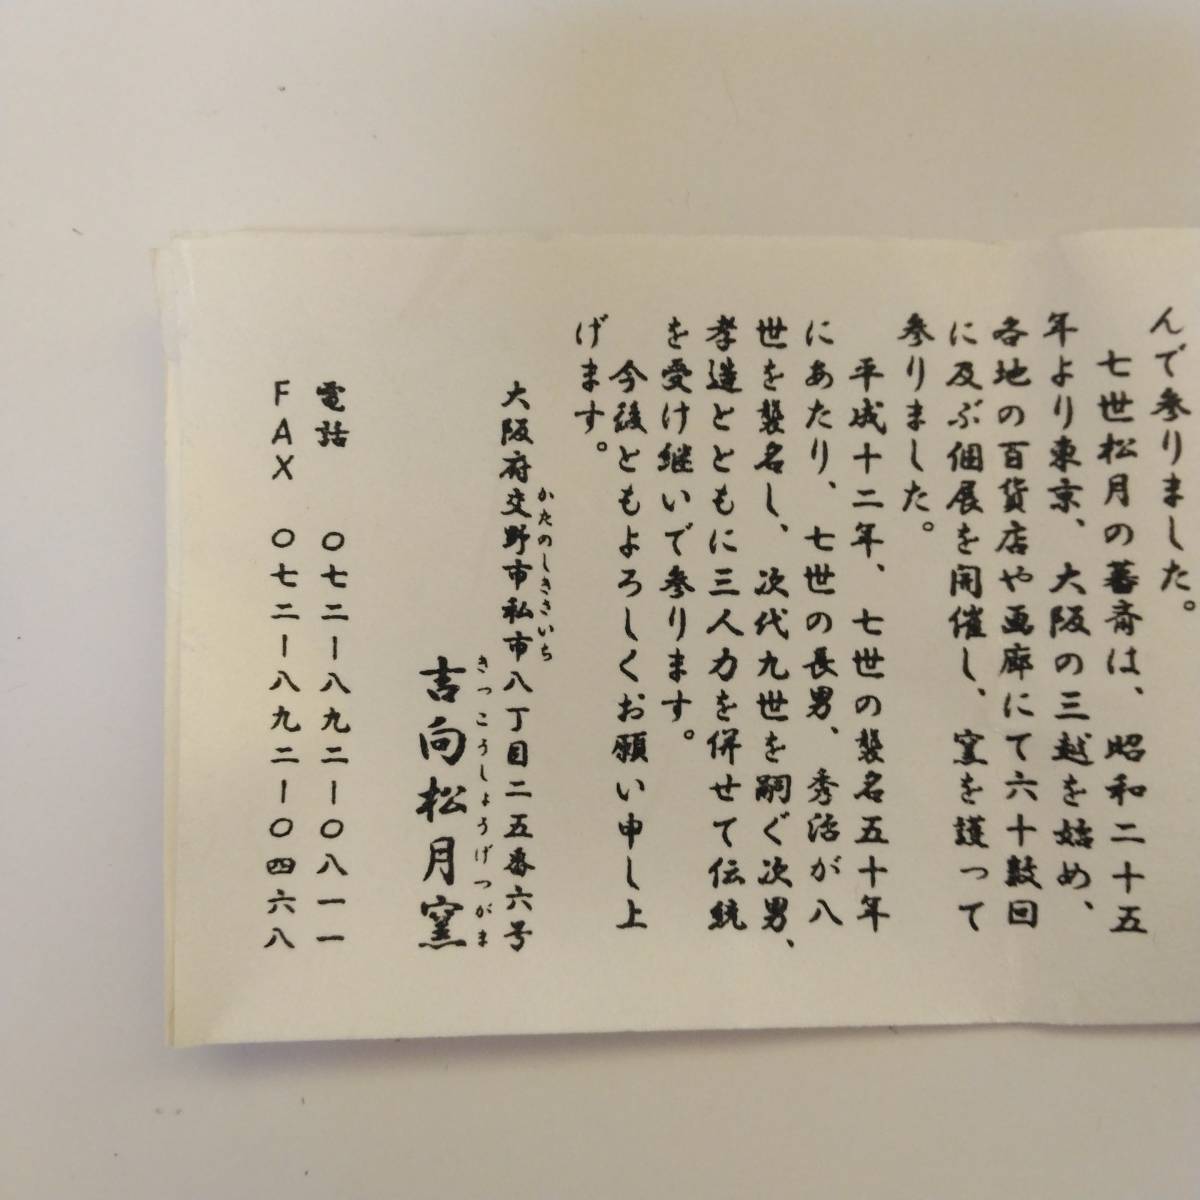 んで参りました。
七世松月の蕃斎は、昭和二十五
年より東京、大阪の三越を始め、
各地の百貨店や画廊にて六十数回
に及ぶ個展を開催し、窯を護って
参りました。
平成十二年、七世の襲名五十年
にあたり、七世の長男、秀治が八
世を襲名し、次代九世を嗣ぐ次男、
孝造とともに三人力を併せて伝統
を受け継いで参ります。
今後ともよろしくお願い申し上
げます。
かたのしきさいち
大阪府交野市私市八丁目二五番六号
きっこうしょうげつがま
吉向松月窯
電話 〇七二ー八九二ー〇八一一
FAX 〇七二ー八九二ー〇四六八